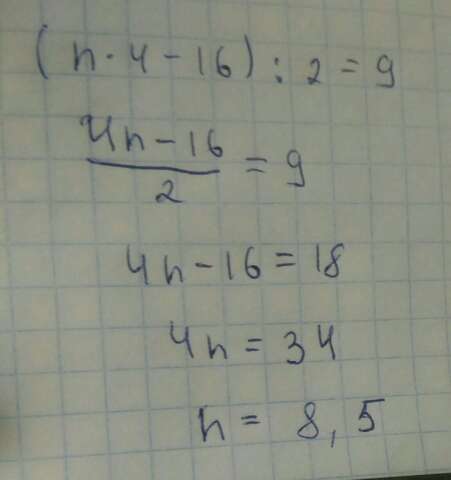 (n · 4 - 16) : 2 = 9
4n - 16 / 2 = 9
4n - 16 = 18
4n = 34
n = 8,5